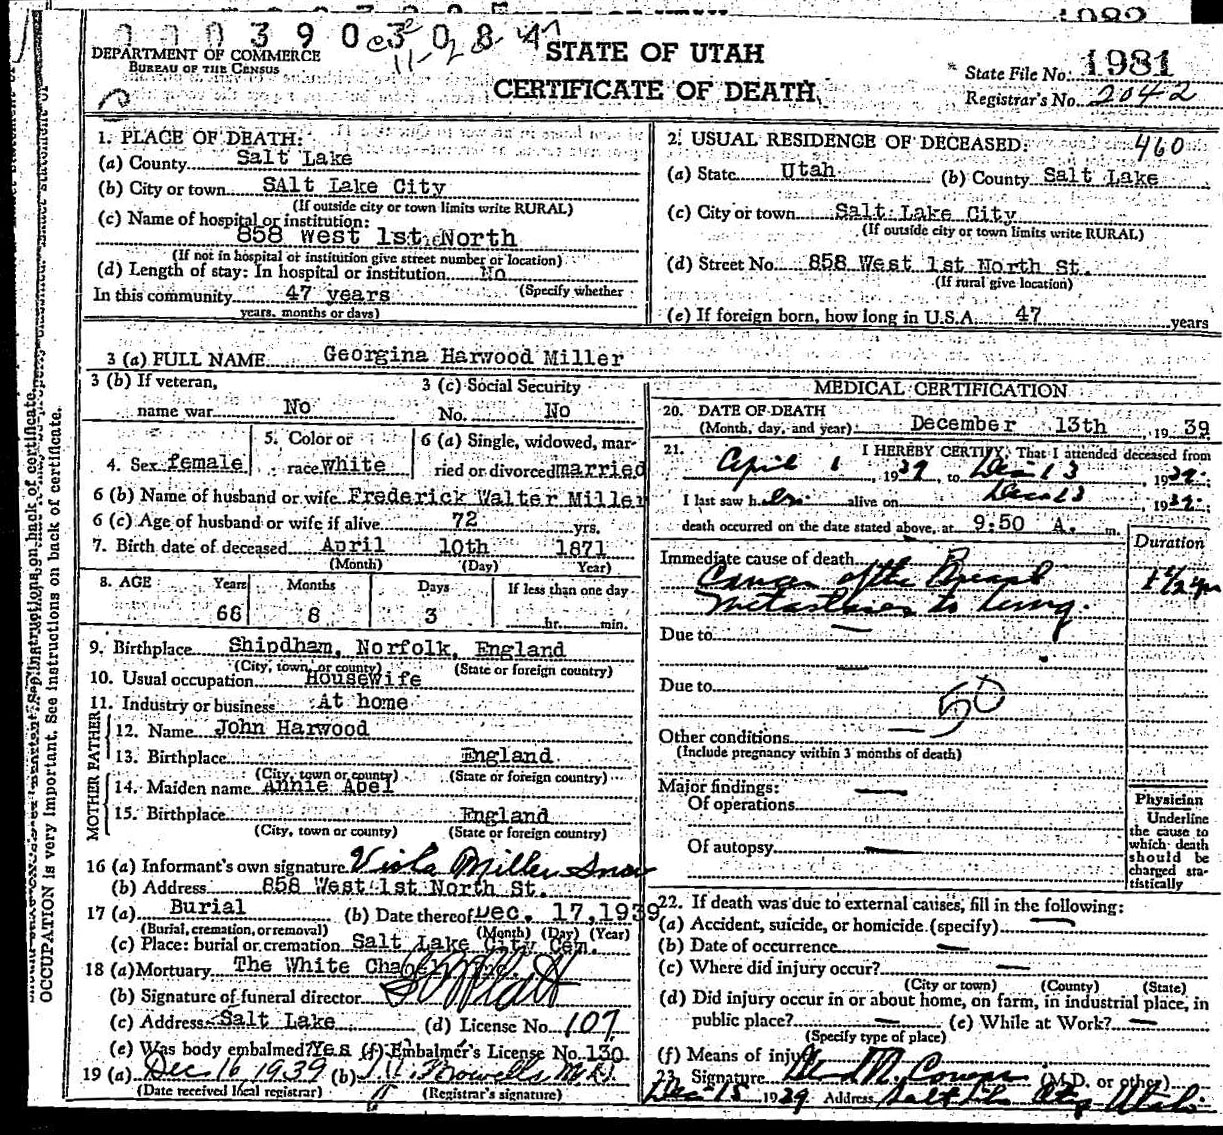 DEPARTMENT OF COMMERCE
BUREAU OF THE CENSUS
STATE OF UTAH
CERTIFICATE OF DEATH
State File No. 1981
Registrar's No. 2042
460
1. PLACE OF DEATH:
(a) County Salt Lake
(b) City or town SAlt Lake City
(If outside city or town limits write RURAL)
(c) Name of hospital or institution:
858 West 1st North
(If not in hospital or institution give street number or location)
(d) Length of stay: In hospital or institution No
(Specify whether
In this community 47 years
years, months or days)
2. USUAL RESIDENCE OF DECEASED:
(a) State Utah (b) County Salt Lake
(c) City or town Salt Lake City
(If outside city or town limits write RURAL)
(d) Street No. 858 West 1st North St.
(If rural give location)
(e) If foreign born, how long in U.S.A. 47 years
3 (a) FULL NAME Georgina Harwood Miller
3 (b) If veteran,
name war No
3 (c) Social Security
No. No
4. Sex female
5. Color or
race white
6 (a) Single, widowed, mar-
ried or divorced married
6 (b) Name of husband or wife Frederick Walter Miller
6 (c) Age of husband or wife if alive 72 yrs.
7. Birth date of deceased April 10th 1871
(Month) (Day) Year)
8. AGE Years Months Days If less than one day
68 8 3 hr. min.
9. Birthplace Shipdham, Norfolk, England
(City, town, or county) (State or foreign country)
10. Usual occupation Housewife
11. Industry or business At home
FATHER
12. Name John Harwood
13. Birthplace England
(City, town or county) (State or foreign country)
MOTHER
14. Maiden name Annie Abel
15. Birthplace England
(City, town or county) (State or foreign country)
16 (a) Informant's own signature Viola Miller Snow
(b) Address 858 West 1st North St.
17 (a) Burial (b) Date thereof Dec. 17, 1939
(Burial, cremation, or removal) (Month) (Day) (Year)
(c) Place: burial or cremation Salt Lake City Cem.
18 (a) Mortuary The White Chapel
(b) Signature of funeral director
(c) Address Salt Lake (d) License No. 107
(e) Was body embalmed? Yes (f) Embalmer's License No. 130
19 (a) Dec 16 1939 (b)
(Date received local registrar) (Registrar's signature)
MEDICAL CERTIFICATION
20. DATE OF DEATH
(Month, day, and year) December 13th, 1939
21. I HEREBY CERTIFY, That I attended deceased from
April 1, 1939, to Dec 13, 1939;
I last saw her alive on Dec 13 1939;
death occurred on the date stated above, at 9:50 A. m.
Duration
Immediate cause of death
Cancer of the Breast 1 1/2 yr
metastases to lung.
Due to
Due to
50
Other conditions
(Include pregnancy within 3 months of death)
Major findings:
Of operations
Of autopsy
Physician
Underline
the cause to
which death
should be
charged sta-
tistically
22. If death was due to external causes, fill in the following:
(a) Accident, suicide, or homicide (specify)
(b) Date of occurrence
(c) Where did injury occur?
(City or town) (County) (State)
(d) Did injury occur in or about home, on farm, in industrial place, in
public place? (e) While at Work?
(Specify type of place)
(f) Means of injury
23. Signature (M.D. or other)
Dec 15 1939 Address Salt Lake City Utah
OCCUPATION is very important. See instructions on back of certificate.